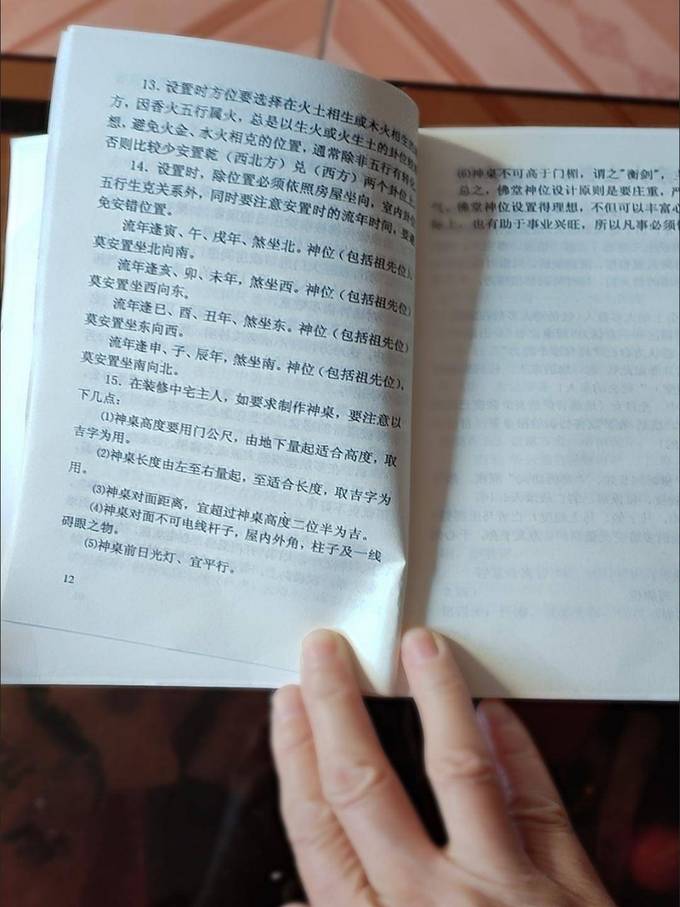 13. 设置时方位要选择在火土相生或木火相生的
方，因香火五行属火，总是以生火或火生土的卦位较
想，避免火金、水火相克的位置，通常除非五行有转化
否则比较少安置乾（西北方）兑（西方）两个卦位上
14. 设置时，除位置必须依照房屋坐向，室内卦位
五行生克关系外，同时要注意安置时的流年时间，要避
免安错位置。
流年逢寅、午、戌年，煞坐北。神位（包括祖先位），
莫安置坐北向南。
流年逢亥、卯、未年，煞坐西。神位（包括祖先位）
莫安置坐西向东。
流年逢巳、酉、丑年、煞坐东。神位（包括祖先位）
莫安置坐东向西。
流年逢申、子、辰年，煞坐南。神位（包括祖先位），
莫安置坐南向北。
15. 在装修中宅主人，如要求制作神桌，要注意以
下几点：
⑴神桌高度要用门公尺，由地下量起适合高度，取
吉字为用。
⑵神桌长度由左至右量起，至适合长度，取吉字为
用。
⑶神桌对面距离，宜超过神桌高度二位半为吉。
⑷神桌对面不可电线杆子，屋内外角，柱子及一线
碍眼之物。
⑸神桌前日光灯、宜平行。
12
⑹神桌不可高于门楣，谓之“衡剑”，
总之，佛堂神位设计原则是要庄重，严
气。佛堂神位设置得理想，不但可以丰富心
际上，也有助于事业兴旺，所以凡事必须